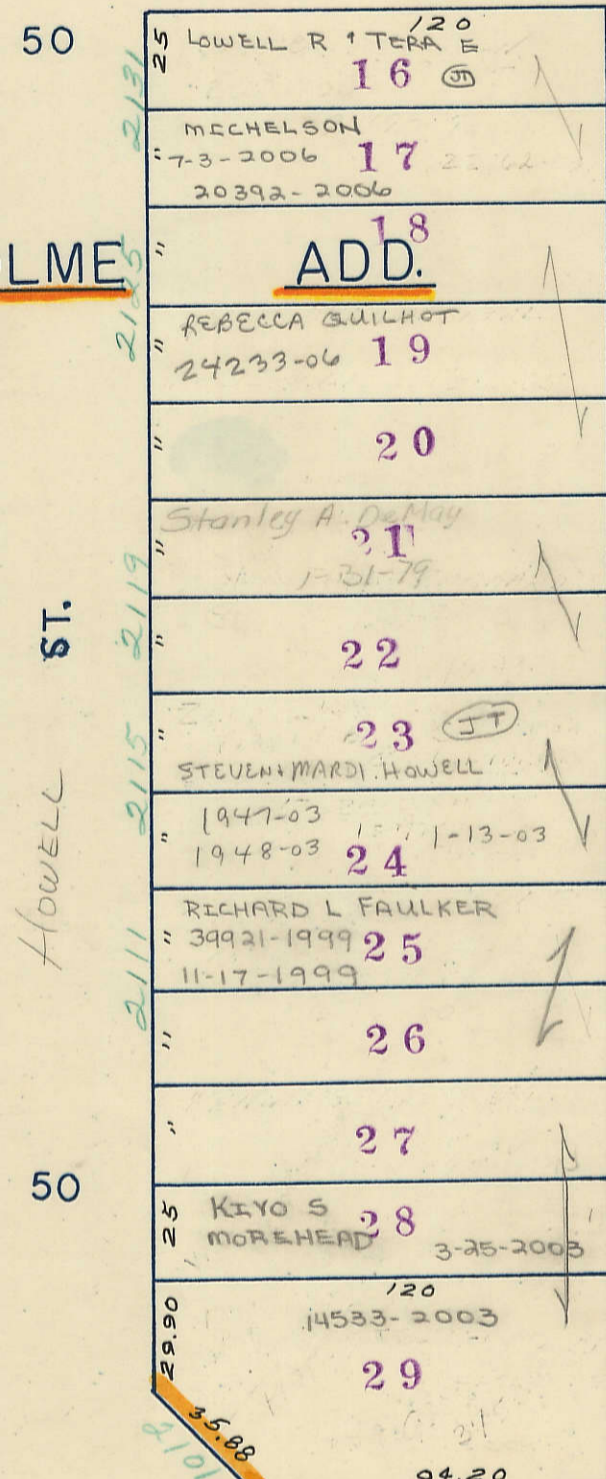 50
2131
25
LOWELL R & TERA E
120
16 JT
MICHELSON
" 7-3-2006 17
20392-2006
18
LME
2125
"
ADD.
REBECCA QUILHOT
" 24233-06 19
" 20
Stanley A. DeMay
" 21
1-31-79
2119
ST.
" 22
" 23 JT
STEVEN & MARDI HOWELL
2115
1947-03
1-13-03
" 1948-03 24
HOWELL
RICHARD L FAULKER
" 39921-1999 25
11-17-1999
2111
" 26
" 27
50
25
KIYO S 28
MOREHEAD 3-25-2003
120
14533-2003
29.90
29
35.88
2101
94.20